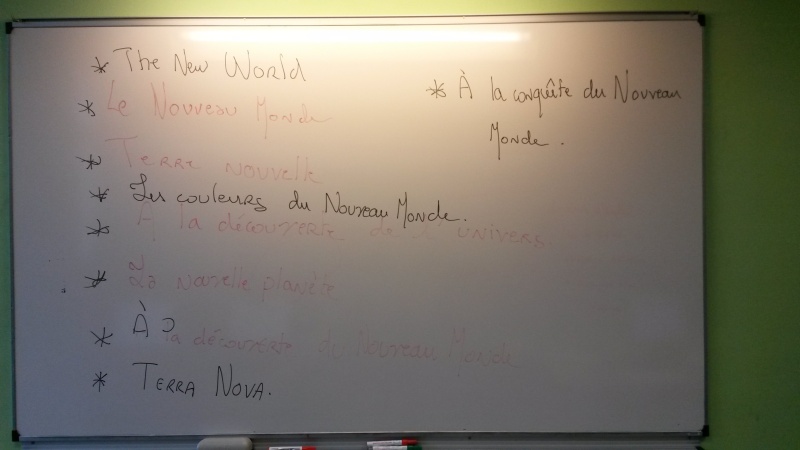 * The New World
* Le Nouveau Monde
* Terre nouvelle
* Les couleurs du Nouveau Monde.
* À la découverte de l'univers.
* La nouvelle planète
* À la découverte du Nouveau Monde
* TERRA NOVA.
* À la conquête du Nouveau
Monde.